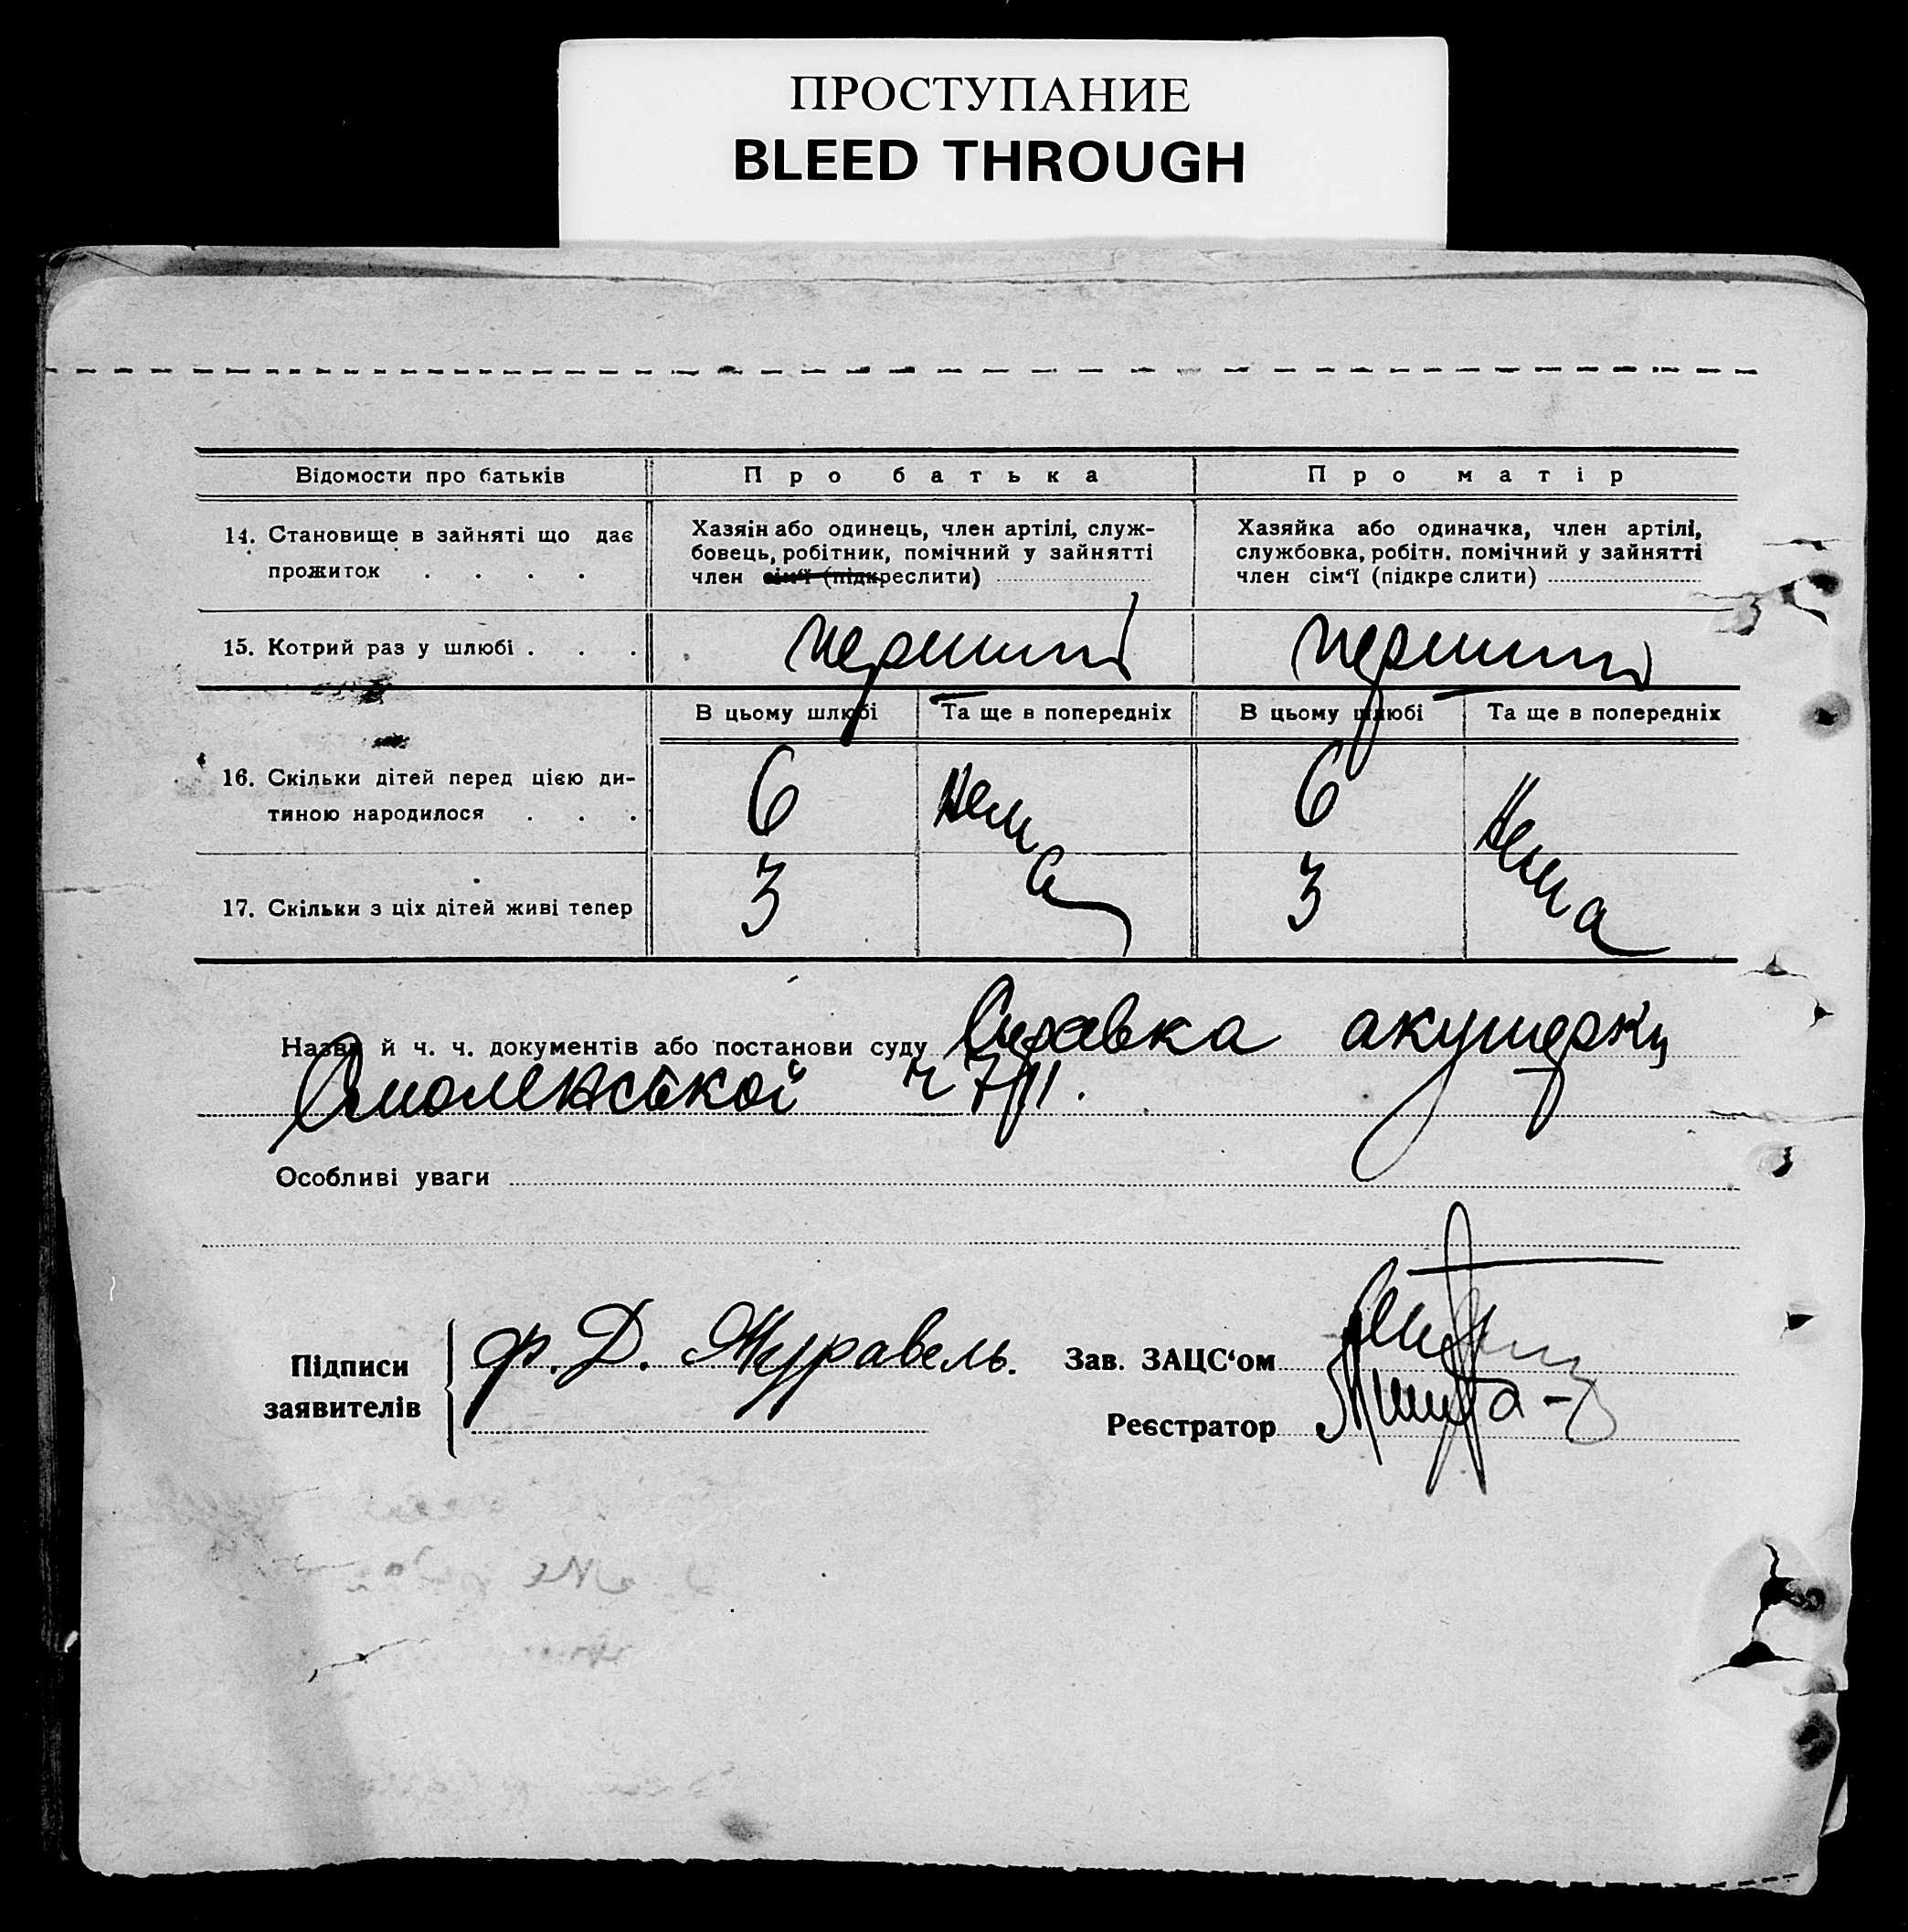 ПРОСТУПАНИЕ
BLEED THROUGH
Відомости про батьків
Про батька
Про матір
14. Становище в зайняті що дає
прожиток . . . .
Хазяін або одинець, член артілі, служ-
бовець, робітник, помічний у зайнятті
член сім'ї (підкреслити)
Хазяйка або одиначка, член артілі,
службовка, робітн. помічний у зайнятті
член сім'ї (підкреслити)
15. Котрий раз у шлюбі . . .
перший
перший
В цьому шлюбі
Та ще в попередніх
В цьому шлюбі
Та ще в попередніх
16. Скільки дітей перед цією ди-
тиною народилося . . .
6
Нема
6
Нема
17. Скільки з ціх дітей живі тепер
3
3
Назви й ч. ч. документів або постанови суду Справка акушерки
Смоленської 7/II.
Особливі уваги
Підписи
заявителів
Ф. Д. Журавель.
Зав. ЗАЦС'ом
Реєстратор